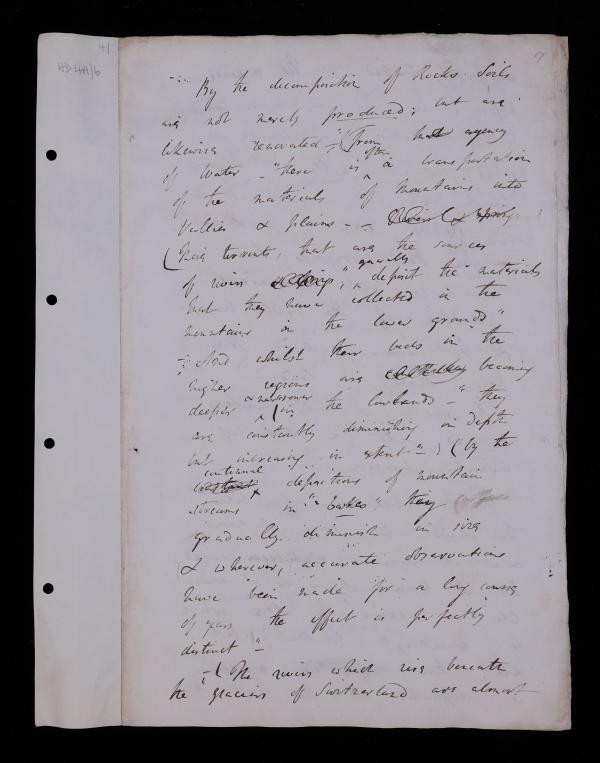 41
HD4H/6
7
By the decomposition of Rocks Soils
are not merely produced; but are
likewise renovated – "From that agency
of Water – "there is often a transportation
of the materials of mountains into
Vallies & plains –
(The torrents, that are the sources
of rivers "generally deposit the "materials
that they have collected in the
mountains in the lower grounds"
– And whilst their beds in the
higher regions are becoming
deeper & narrower (in the lowlands – "they
are constantly diminishing in depth
but increasing in extent" –) (by the
continual depositions of mountain
streams in "Lakes" they
gradually diminish in size
& wherever, accurate observations
have "been "made" for a long course
of years the effect is perfectly
distinct" –
– (The rivers which rise beneath
the glaciers of Switzerland are almost